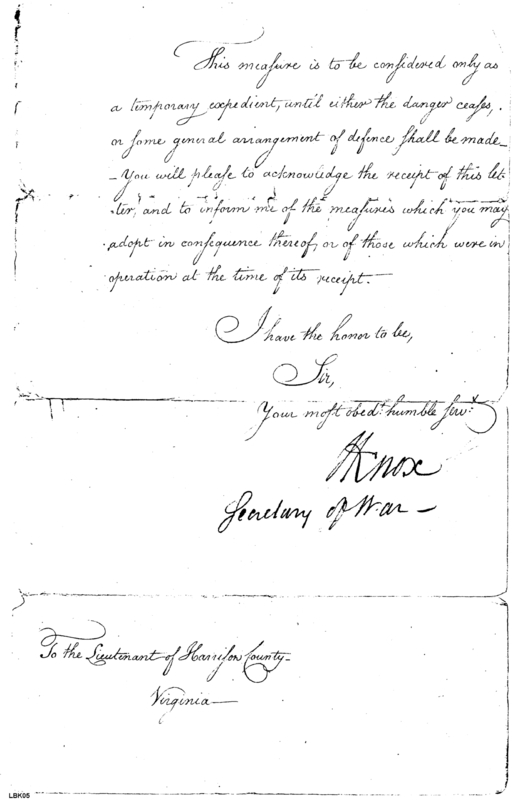 This measure is to be considered only as
a temporary expedient, until either the danger ceases,
or some general arrangement of defence shall be made—
— You will please to acknowledge the receipt of this let-
ter, and to inform me of the measures which you may
adopt in consequence thereof, or of those which were in
operation at the time of its receipt.—
I have the honor to be,
Sir,
Your most obedt. humble servt.
HKnox
Secretary of War —
To the Lieutenant of Harrison County—
Virginia—
LBK05